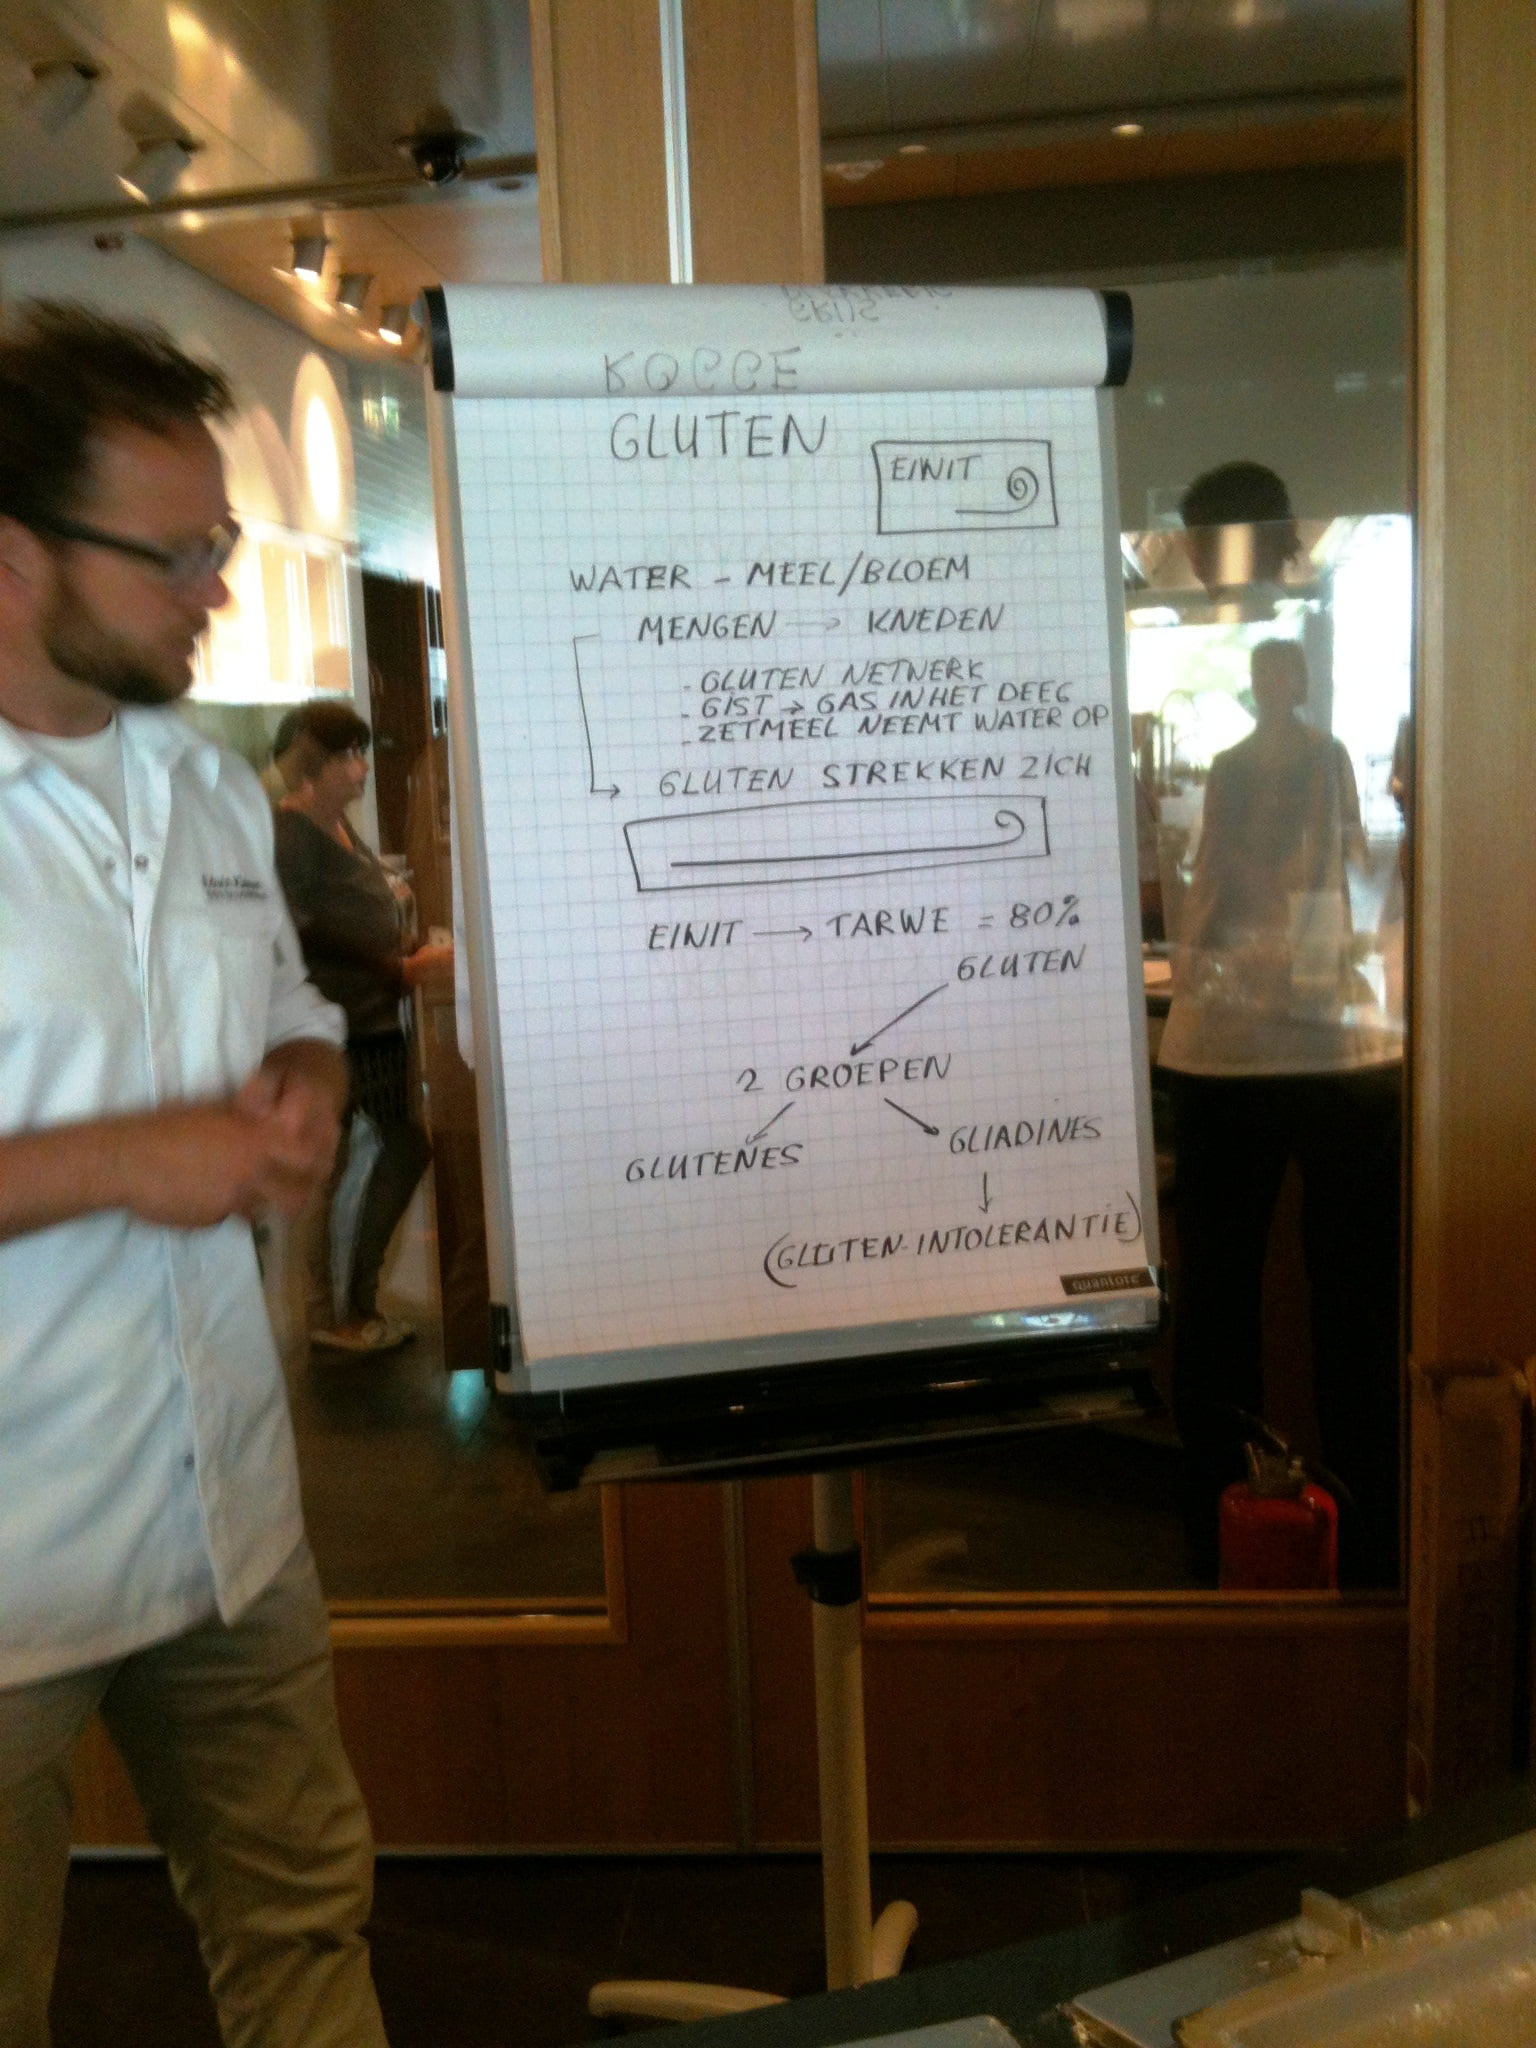 GLUTEN
EIWIT
WATER - MEEL/BLOEM
MENGEN → KNEDEN
- GLUTEN NETWERK
- GIST → GAS IN HET DEEG
- ZETMEEL NEEMT WATER OP
GLUTEN STREKKEN ZICH
EIWIT → TARWE = 80%
GLUTEN
2 GROEPEN
GLUTENES
GLIADINES
(GLUTEN-INTOLERANTIE)
quantore